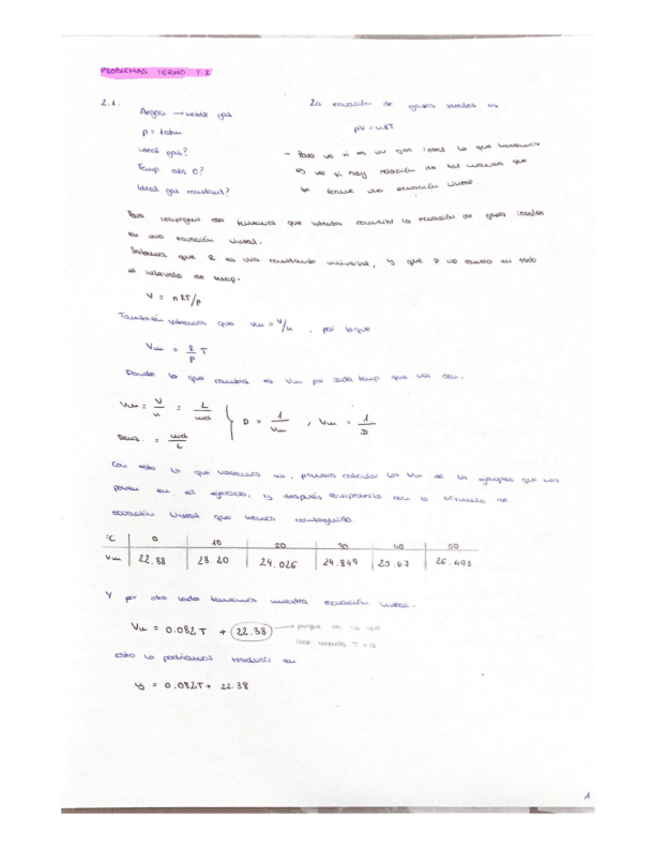 PROBLEMAS TERMO T.2
2.1.
Argon → noble gas
p = 1 atm
ideal gas?
Temp. abs 0?
Ideal gas constant?
La ecuación de gases ideales es
pV = nRT
- Para ver si es un gas ideal lo que hacemos
es ver si hay relación de tal manera que
se forme una ecuación lineal.
Para conseguir eso tenemos que intentar convertir la ecuación de gases ideales
en una ecuación lineal.
Sabemos que R es una constante universal, y que P no cambia en todo
el intervalo de temp.
V = nRT/p
También sabemos que Vm = V/n , por lo que
Vm = R/p T
Donde lo que cambia es Vm por cada temp que nos dan.
Vm = V/n = L/mol
Dens. = mol/L
D = 1/Vm ; Vm = 1/D
Con esto lo que hacemos es, primero calcular los Vm de los ejemplos que nos
ponen en el ejercicio, y después compararlo con la fórmula de
ecuación lineal que hemos conseguido.
°C 0 10 20 30 40 50
Vm 22.38 23.20 24.026 24.849 25.67 26.493
Y por otro lado tenemos nuestra ecuación lineal.
Vm = 0.082T + 22.38 → porque es lo que
vale cuando T = 0
esto lo podríamos traducir en
y = 0.082T + 22.38
1